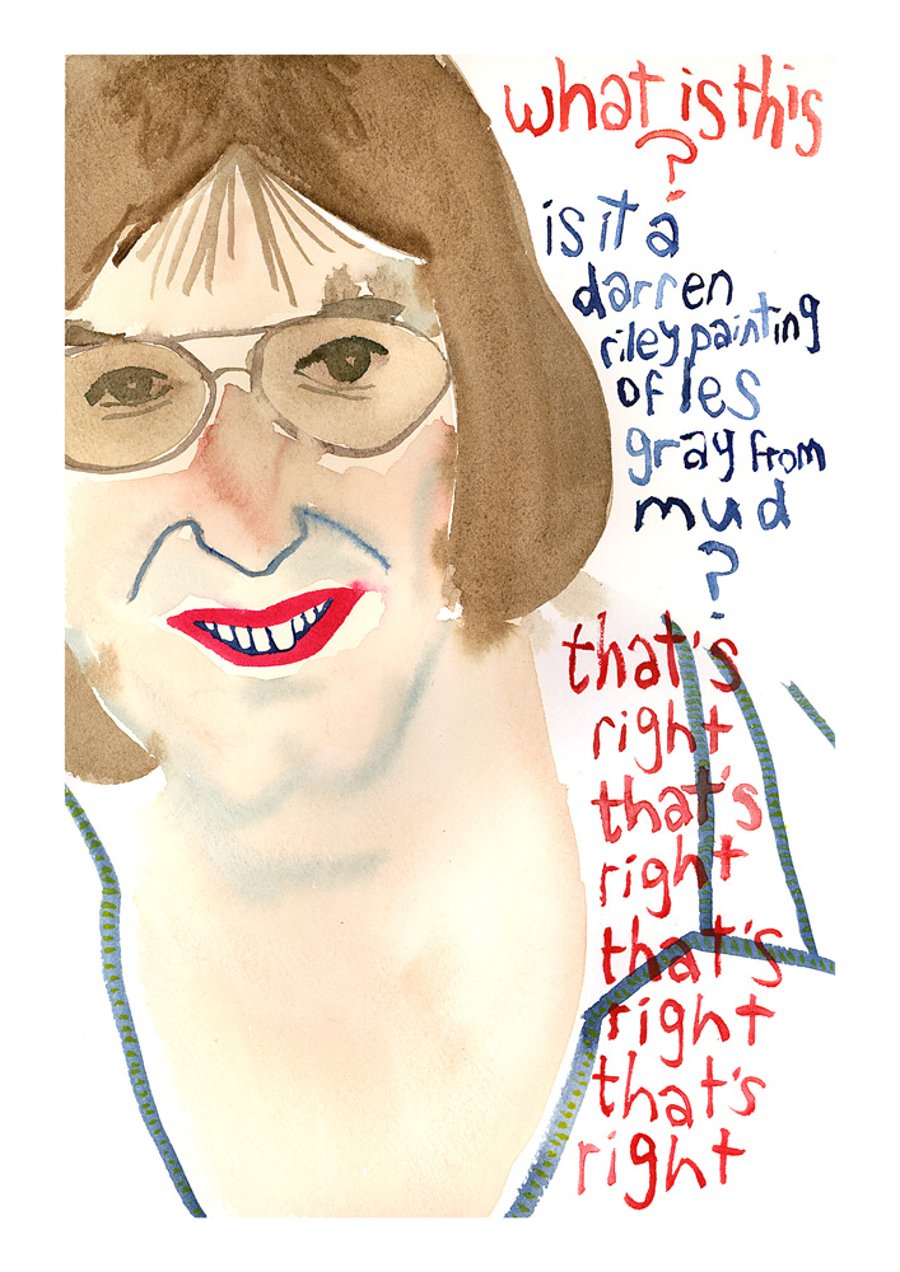 what is this
?
is it a
darren
riley painting
of les
gray from
mud
?
that's
right
that's
right
that's
right
that's
right